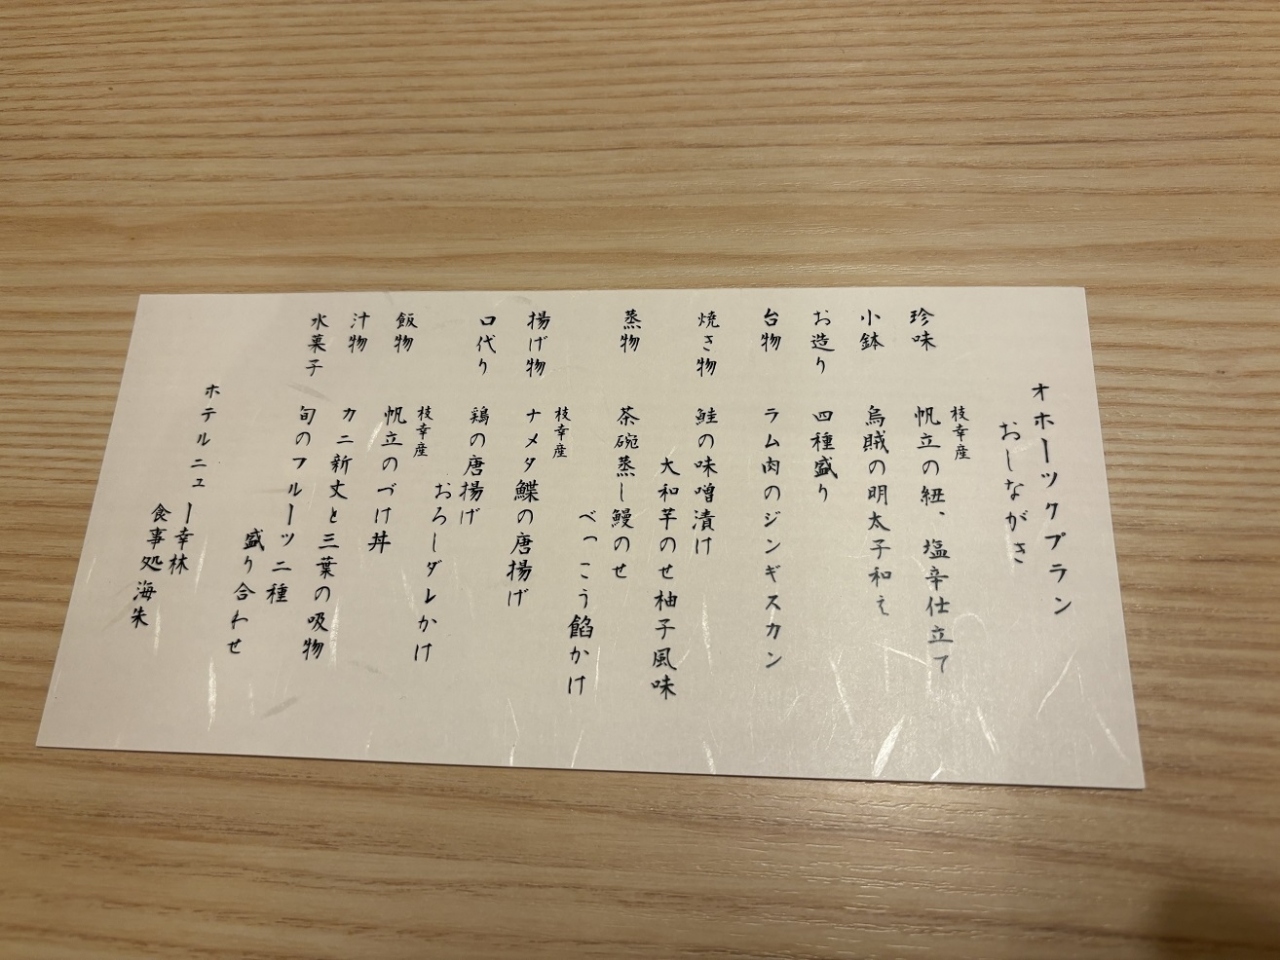 オホーツクプラン
おしながき
珍味 枝幸産
帆立の紐、塩辛仕立て
小鉢 烏賊の明太子和え
お造り 四種盛り
台物 ラム肉のジンギスカン
焼き物 鮭の味噌漬け
大和芋のせ柚子風味
蒸物 茶碗蒸し鰻のせ
べっこう餡かけ
揚げ物 枝幸産
ナメタ鰈の唐揚げ
口代り 鶏の唐揚げ
おろしダレかけ
飯物 枝幸産
帆立のづけ丼
汁物 カニ新丈と三葉の吸物
水菓子 旬のフルーツ二種
盛り合わせ
ホテルニュー幸林
食事処 海朱